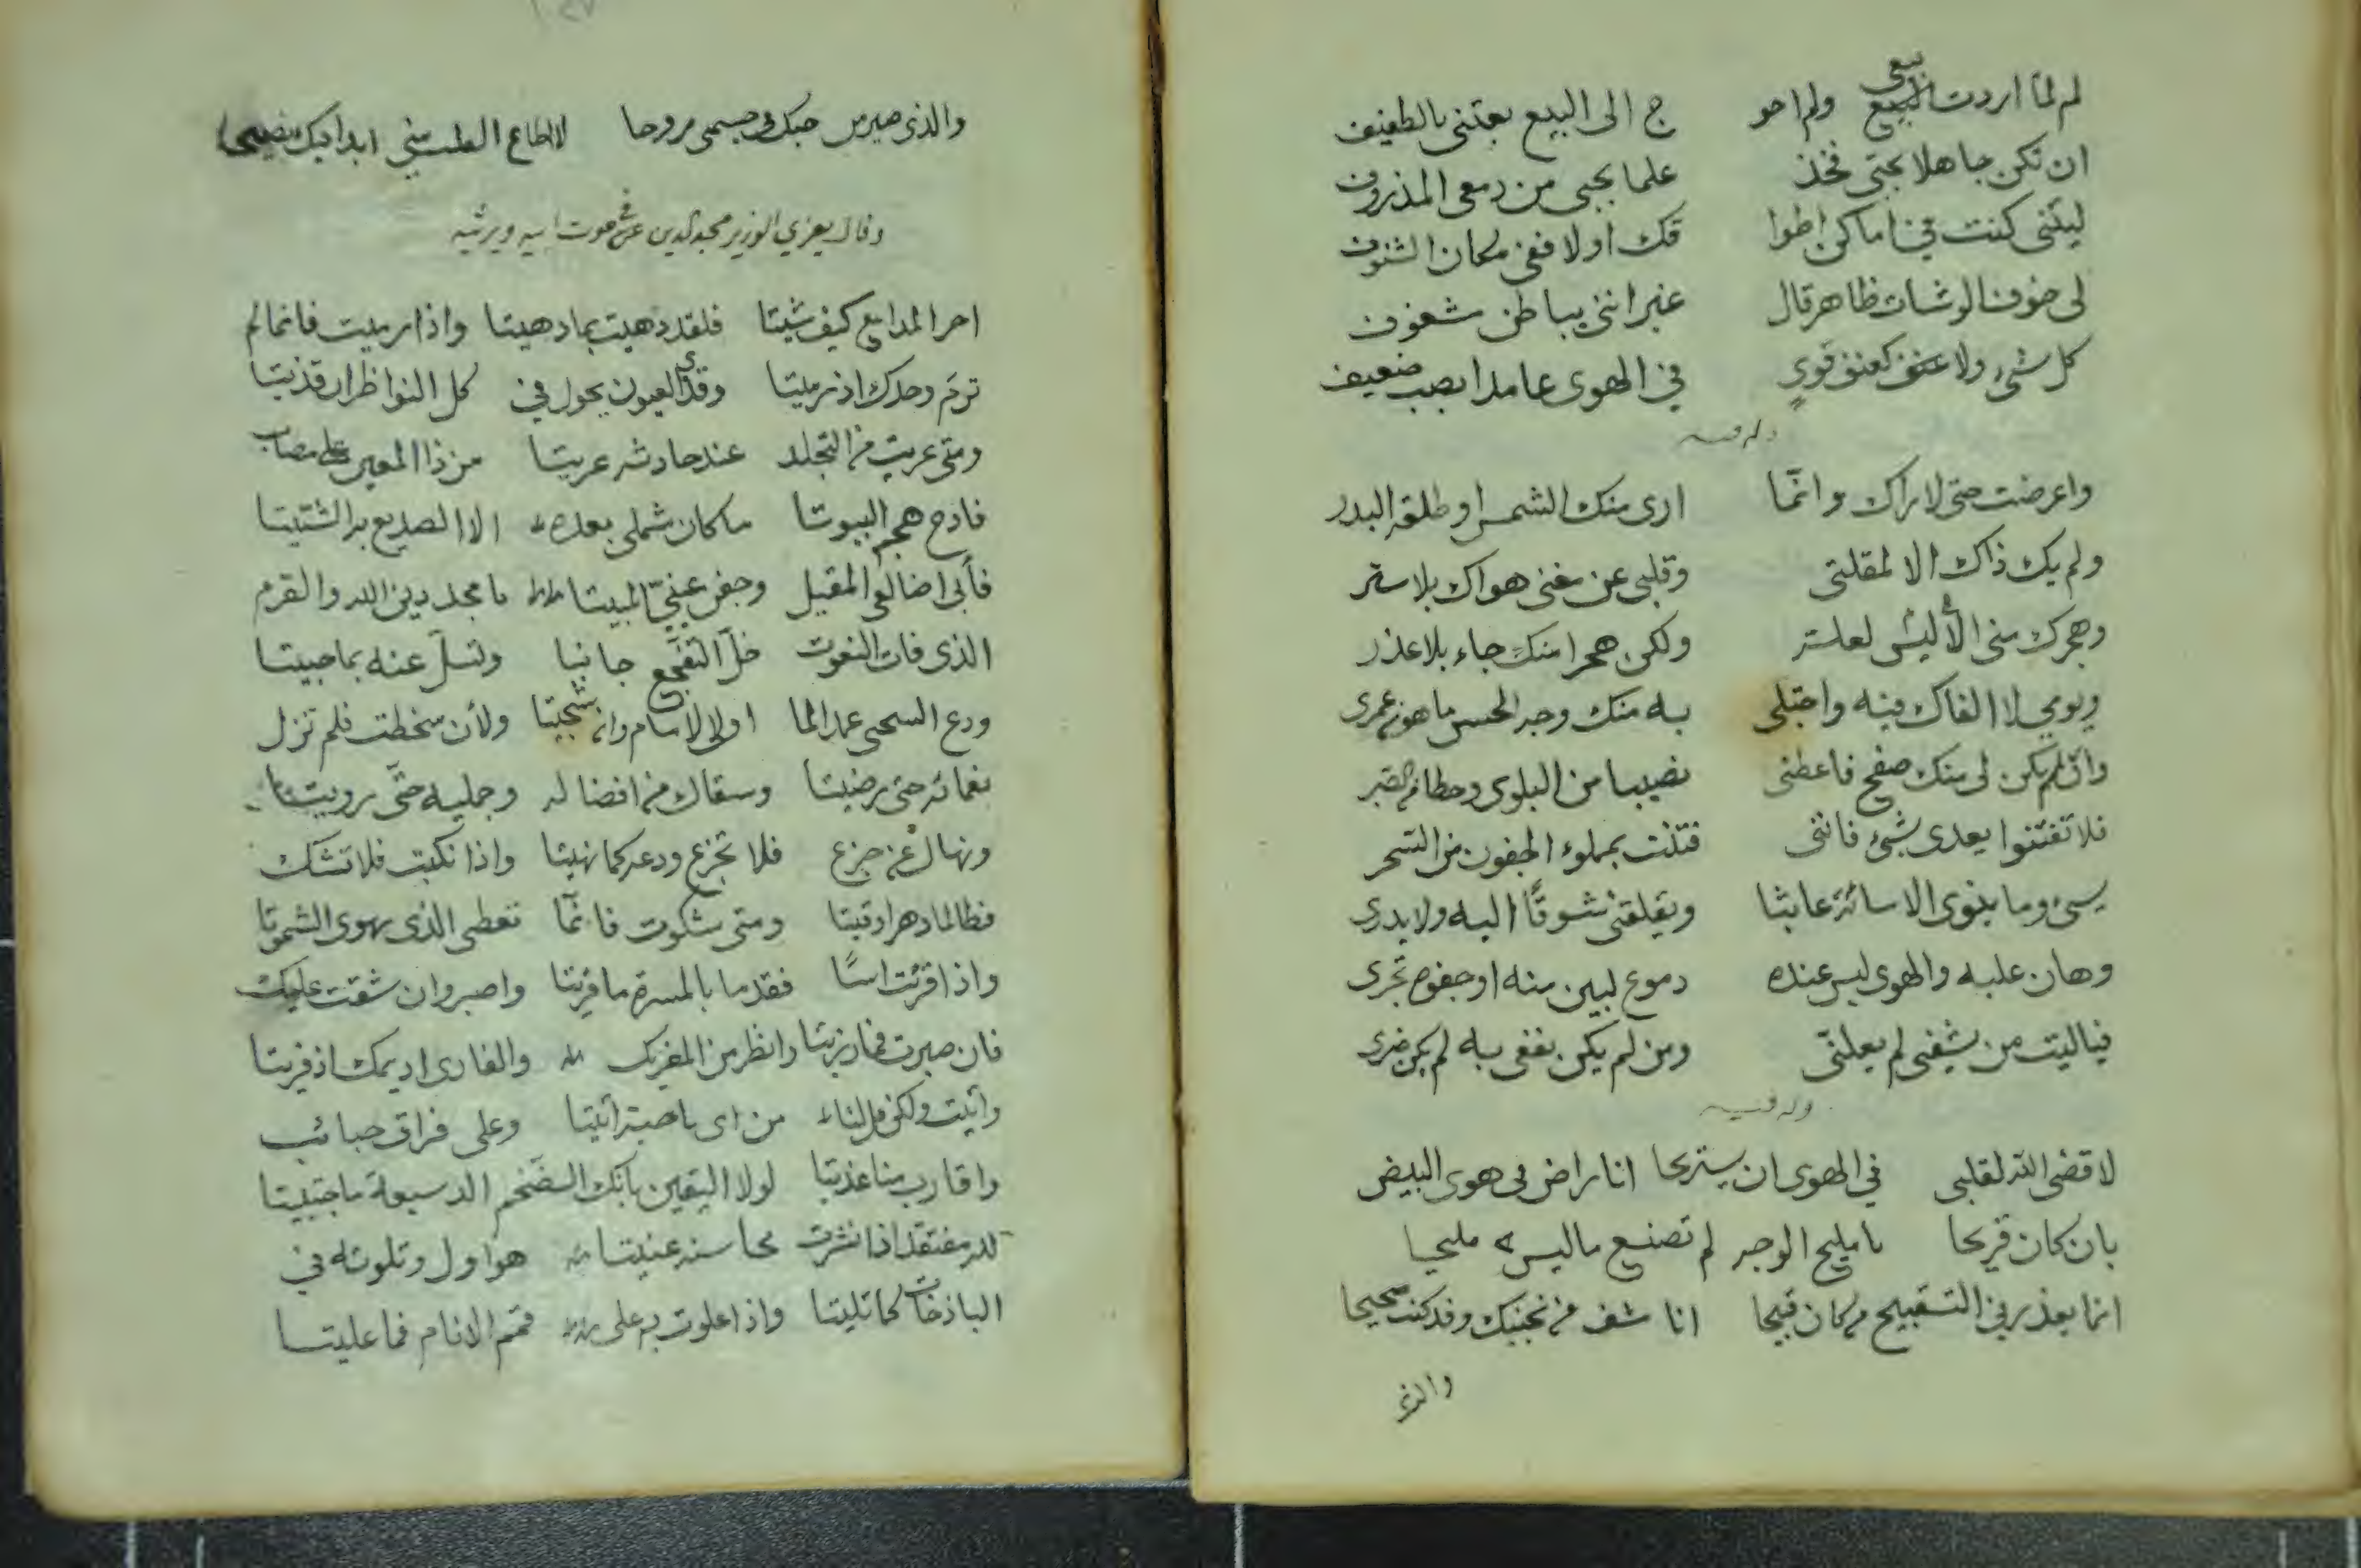 لم لما اردت بيعى ولم احو ج الى البيع بعتنى بالطفيف
ان تكن جاهلا بحبى فخذ علما بحبى من دمعى المذروف
ليتنى كنت فى اماكن اطوا قك اولا ففى مكان الشنوف
لى خوف الوشات ظاهر قال غير اننى بباطن شغوف
كل شئ ولا عنف كعنف قوي فى الهوى عامدا بصب ضعيف
وله فيه
واعرضت حتى لا اراك وانما ارى منك الشمس او طلعة البدر
ولم يك ذاك الا لمقلتى وقلبى عن مغنى هواك بلا ستر
وهجرك منى لعلة ولكن هجرا منك جاء بلا عذر
ويومي لا القاك فيه واجتلى به منك وجه الحسن ما هو من عمرى
وان لم يكن لى منك صفح فاعطنى نصيبا من البلوى وحظا من الصبر
فلا تفتنوا بعدى بشئ فاننى فتنت بمملوء الجفون من السحر
يسئ وما ينوى الاسائة عابثا ويقلقنى شوقًا اليه ولا يدرى
وهان عليه والهوى ليس عنده دموع لبين منه او جفوة تجرى
فياليت من يشفنى لم يعلنى ومن لم يكن نفعى به لم يكن ضرى
وله فيه
لا قضى الله لقلبى فى الهوى ان يستريحا انا راض فى هوى البيض
بان كان قريحا يا مليح الوجه لم تصنع ما ليس مليحا
انما يعذر فى التقبيح من كان قبيحا انا من تجنيك وقد كنت صحيحا
والذى
والذى صير من حبك فى جسمى روحا لا اطاع القلب منى ابدا فيك نصيحا
وقال يعزي الوزير مجد الدين عن موت ابيه ويرثيه
احر المدامع كيف شيتا فلقد دهيت بما دهيتا واذا رميت فانما لم
ترم وحدك اذ رميتا وقذى العيون يحول فى كل النواظر ان قذيتا
ومتى عريت من التجلد عند حادثه عريتا من ذا المعين على مصاب
فادح هجم البيوتا ما كان شملى بعده الا الصديع به الشتيتا
فأبى اضالعى المقيل وجفن عينيّ المبيتا يا مجد دين الله والقرم
الذى فات النعوت خلّ التفجع جانبا وتسلّ عنه بما حبيتا
ودع الشجيتا ولأن سخطت فلم تزل
نعمائه حتى رضيتا وسقاك من افضاله وجميله حتى رويتا
ونهاك عن جزع فلا تجزع ودعه كما نهيتا واذا نكبت فلا تشك
فطالما دهرا وقيتا ومتى شكوت فانما تعطى الذى يهوى الشموتا
واذا قريت اسًا فقدما بالمسرة ما قريتا واصبر وان شقت عليك
فان صبرت فما رزيتا وانظر من المغرىك والفارى اديمك اذ فريتا
وأتيت ولكن قل لنا من اى ناحية أتيتا وعلى فراق حبائب
واقارب منا غذيتا لولا اليقين بانك الضخم الدسيعة ما حبيتا
لله مفتقد اذا نشرت محاسنه عنيتا هو اول وتلوته فى
الباذخات كما تليتا واذا علوت به على قمم الانام فما عليتا